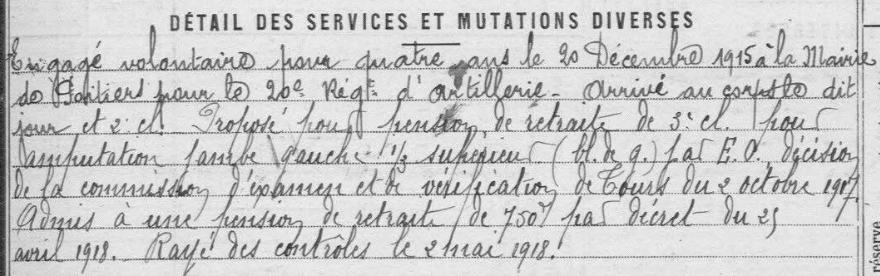 DÉTAIL DES SERVICES ET MUTATIONS DIVERSES
Engagé volontaire pour quatre ans le 20 Décembre 1915 à la Mairie
de Poitiers pour le 20e Régt d'artillerie - Arrivé au corps le dit
jour et 2e cl. Proposé pour pension de retraite de 3e cl. pour
amputation jambe gauche 1/3 supérieur (bl. de g.) par E.O. décision
de la commission d'examen et de vérification de Tours du 2 octobre 1917.
Admis à une pension de retraite de 750f par décret du 25
avril 1918. Rayé des contrôles le 2 mai 1918.
réserve